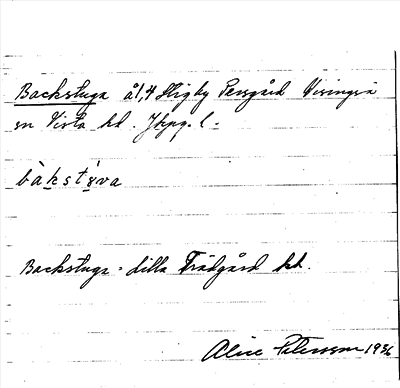 Backstuga å 1,4 Stigby Persgård Visingsö
sn Vista hd. Jkpg. l.
bàkstúva
Backstuga = lilla Trädgård hd.
Alice Petersson 1936